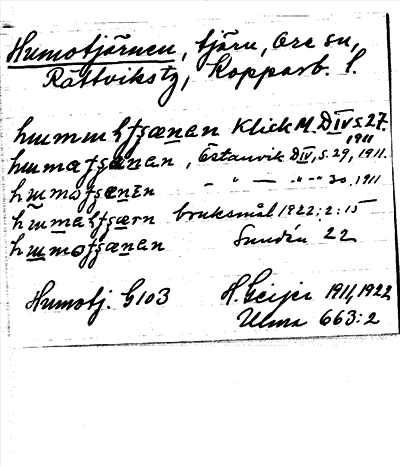 Humotjärnen, tjärn, Ore sn,
Rättvikstg, Kopparb. l.
hummuɧfsænan Klick M. DIV s. 27.
1911
humafsænan, Östanvik DIV, s. 29, 1911.
humafsænɛn " — " " 30, 1911
humaɧfsærn bruksmål 1922:2:15
humofsænan Sundén 22
Humotj. G103 H. Geijer 1911, 1922
Ulma 663:2